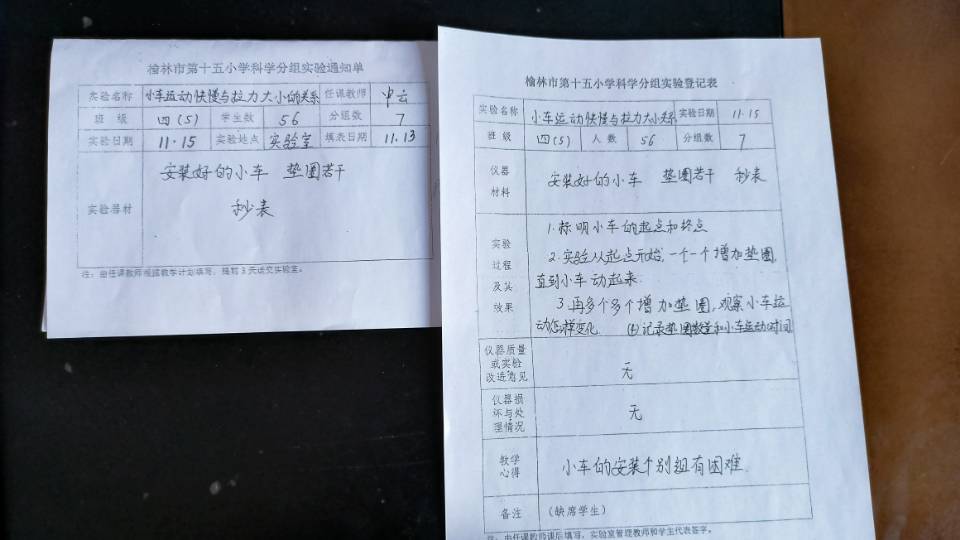 榆林市第十五小学科学分组实验通知单
实验名称 小车运动快慢与拉力大小的关系 任课教师 申云
班 级 四(5) 学生数 56 分组数 7
实验日期 11.15 实验地点 实验室 填表日期 11.13
实验器材
安装好的小车 垫圈若干
秒表
注：由任课教师根据教学计划填写，提前3天送交实验室。
榆林市第十五小学科学分组实验登记表
实验名称 小车运动快慢与拉力大小关系 实验日期 11.15
班 级 四(5) 人 数 56 分组数 7
仪器
材料
安装好的小车 垫圈若干 秒表
实验
过程
及其
效果
1.标明小车的起点和终点
2.实验从起点开始,一个一个增加垫圈,
直到小车动起来.
3.再多个多个增加垫圈,观察小车运
动怎样变化 (4)记录垫圈数量和小车运动时间
仪器质量
或实验
改进意见
无
仪器损
坏与处
理情况
无
教学
心得
小车的安装个别组有困难.
备注 (缺席学生)
注：由任课教师课后填写，实验室管理教师和学生代表签字。